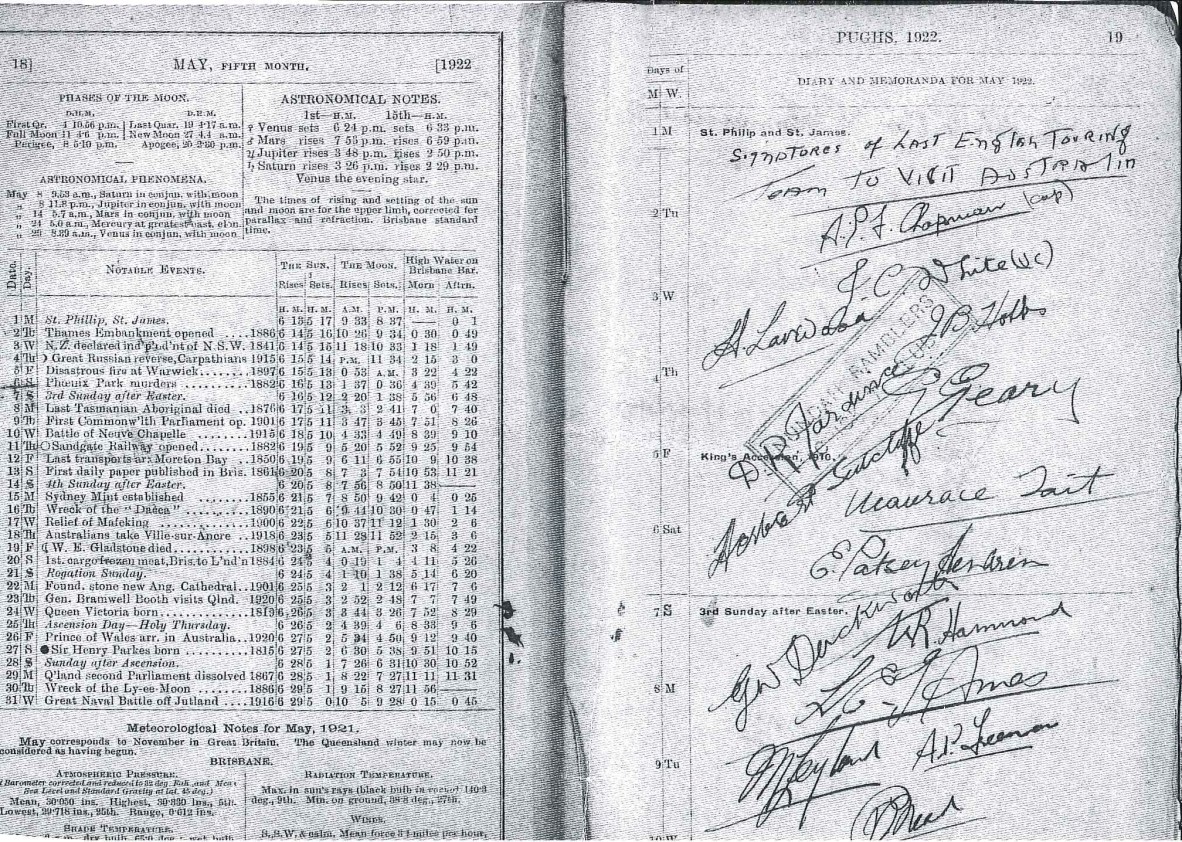 18] MAY, FIFTH MONTH. [1922
PHASES OF THE MOON.
D.H.M. D.H.M.
First Qr. 4 10.56 p.m. Last Quar. 19 4·17 a.m.
Full Moon 11 4·6 p.m. New Moon 27 4.4 a.m.
Perigee, 8 5·10 p.m. Apogee, 20 2·30 p.m.
ASTRONOMICAL PHENOMENA.
May 8 9.53 a.m., Saturn in conjun. with moon
„ 8 11.8 p.m., Jupiter in conjun. with moon
„ 14 5.7 a.m., Mars in conjun. with moon
„ 24 5.0 a.m., Mercury at greatest east. elon.
„ 29 8.39 a.m., Venus in conjun. with moon
ASTRONOMICAL NOTES.
1st—H.M. 15th—H.M.
♀ Venus sets 6 24 p.m. sets 6 33 p.m.
♂ Mars rises 7 55 p.m. rises 6 59 p.m.
♃ Jupiter rises 3 48 p.m. rises 2 50 p.m.
♄ Saturn rises 3 26 p.m. rises 2 29 p.m.
Venus the evening star.
The times of rising and setting of the sun
and moon are for the upper limb, corrected for
parallax and refraction. Brisbane standard
time.
Date. Day. NOTABLE EVENTS. THE SUN. THE MOON. High Water on Brisbane Bar.
Rises Sets. Rises Sets. Morn Aftrn.
H. M. H. M. A.M. P.M. H. M. H. M.
1 M St. Phillip, St. James. 6 13 5 17 9 33 8 37 —— 0 1
2 Tu Thames Embankment opened ....1886 6 14 5 16 10 26 9 34 0 30 0 49
3 W N.Z. declared ind'p'd'nt of N.S.W. 1841 6 14 5 15 11 18 10 33 1 18 1 49
4 Th ☽ Great Russian reverse, Carpathians 1915 6 15 5 14 P.M. 11 34 2 15 3 0
5 F Disastrous fire at Warwick........1897 6 15 5 13 0 53 A.M. 3 22 4 22
6 S Phœnix Park murders ..........1882 6 16 5 13 1 37 0 36 4 39 5 42
7 S 3rd Sunday after Easter. 6 16 5 12 2 20 1 38 5 56 6 48
8 M Last Tasmanian Aboriginal died ..1876 6 17 5 11 3 3 2 41 7 0 7 40
9 Tu First Commonw'lth Parliament op. 1901 6 17 5 11 3 47 3 45 7 51 8 26
10 W Battle of Neuve Chapelle ........1915 6 18 5 10 4 33 4 49 8 39 9 10
11 Th ○ Sandgate Railway opened........1882 6 19 5 9 5 20 5 52 9 25 9 54
12 F Last transports arr. Moreton Bay ..1850 6 19 5 9 6 11 6 55 10 9 10 38
13 S First daily paper published in Bris. 1861 6 20 5 8 7 3 7 54 10 53 11 21
14 S 4th Sunday after Easter. 6 20 5 8 7 56 8 50 11 38 ——
15 M Sydney Mint established ........1855 6 21 5 7 8 50 9 42 0 4 0 25
16 Tu Wreck of the "Dacca" ..........1890 6 21 5 6 9 44 10 30 0 47 1 14
17 W Relief of Mafeking ............1900 6 22 5 6 10 37 11 12 1 30 2 6
18 Th Australians take Ville-sur-Ancre ..1918 6 23 5 5 11 28 11 52 2 15 3 6
19 F ☾ W. E. Gladstone died..........1898 6 23 5 5 A.M. P.M. 3 8 4 22
20 S 1st. cargo frozen meat, Bris. to L'nd'n 1884 6 24 5 4 0 19 1 4 4 11 5 26
21 S Rogation Sunday. 6 24 5 4 1 10 1 38 5 14 6 20
22 M Found. stone new Ang. Cathedral..1901 6 25 5 3 2 1 2 12 6 17 7 6
23 Tu Gen. Bramwell Booth visits Qlnd. 1920 6 25 5 3 2 52 2 48 7 7 7 49
24 W Queen Victoria born............1819 6 26 5 3 3 44 3 26 7 52 8 29
25 Th Ascension Day—Holy Thursday. 6 26 5 2 4 39 4 6 8 33 9 6
26 F Prince of Wales arr. in Australia..1920 6 27 5 2 5 34 4 50 9 12 9 40
27 S ● Sir Henry Parkes born ..........1815 6 27 5 2 6 30 5 38 9 51 10 15
28 S Sunday after Ascension. 6 28 5 1 7 26 6 31 10 30 10 52
29 M Q'land second Parliament dissolved 1867 6 28 5 1 8 22 7 27 11 11 11 31
30 Tu Wreck of the Ly-ee-Moon ........1886 6 29 5 1 9 15 8 27 11 56 ——
31 W Great Naval Battle off Jutland ....1916 6 29 5 0 10 5 9 28 0 15 0 45
Meteorological Notes for May, 1921.
May corresponds to November in Great Britain. The Queensland winter may now be
considered as having begun.
BRISBANE.
ATMOSPHERIC PRESSURE.
(Barometer corrected and reduced to 32 deg. Fah. and Mean
Sea Level and Standard Gravity at lat. 45 deg.)
Mean, 30·050 ins. Highest, 30·330 ins., 5th.
Lowest, 29·718 ins., 25th. Range, 0·612 ins.
SHADE TEMPERATURE.
RADIATION TEMPERATURE.
Max. in sun's rays (black bulb in vacuo) 140·3
deg., 9th. Min. on ground, 38·8 deg., 27th.
WINDS.
S., S.W. & calm. Mean force 3·1 miles per hour,
PUGHS. 1922. 19
Days of
M W.
DIARY AND MEMORANDA FOR MAY 1922.
1 M St. Philip and St. James.
SIGNATURES of LAST ENGLISH TOURING
TEAM TO VISIT AUSTRALIA
2 Tu A.P.F. Chapman (cap)
J.C. White (vc)
3 W H Larwood J B Hobbs
RAMBLERS
4 Th G Geary
D R Jardine
5 F King's Accession, 1910.
Herbert Sutcliffe
Maurice Tait
6 Sat
E. Patsy Hendren
7 S 3rd Sunday after Easter.
GW Duckworth
W.R. Hammond
8 M L E G Ames
9 Tu M Leyland A.P. Freeman
P Mead
10 W